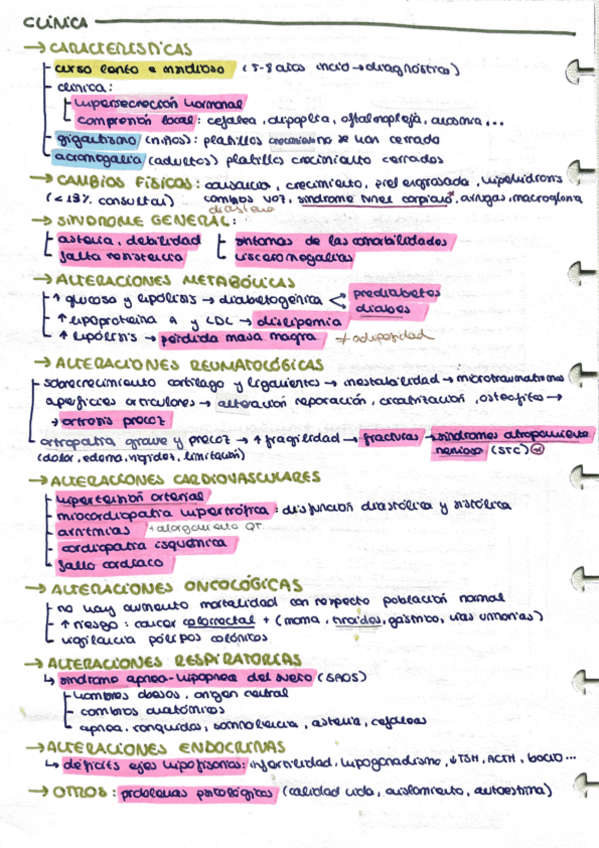 CLÍNICA
→ CARACTERÍSTICAS
- curso lento e insidioso (5-8 años inicio → diagnóstico)
- clínica:
- hipersecreción hormonal
- compresión local: cefalea, diplopia, oftalmoplejía, anosmia, ...
- gigantismo (niños): platillos crecimiento no se han cerrado
- acromegalia (adultos) platillos crecimiento cerrados
→ CAMBIOS FÍSICOS: cansancio, crecimiento, piel engrosada, hiperhidrosis
(< 13% consultan) cambios voz, síndrome túnel carpiano, arrugas, macroglosia
diastema
→ SÍNDROME GENERAL:
- astenia, debilidad - síntomas de las comorbilidades
- falta resistencia - visceromegalias
→ ALTERACIONES METABÓLICAS
- ↑ glucosa y lipólisis → diabetogénica < prediabetes
diabetes
- ↑ lipoproteína a y LDL → dislipemia
- ↑ lipólisis → pérdida masa magra + adiposidad
→ ALTERACIONES REUMATOLÓGICAS
- sobrecrecimiento cartílago y ligamentos → inestabilidad → microtraumatismos
superficies articulares → alteración reparación, cicatrización, osteofitos →
→ artrosis precoz
- artropatía grave y precoz → ↑ fragilidad → fracturas → síndromes atrapamiento
(dolor, edema, rigidez, limitación) nervioso (STC)
→ ALTERACIONES CARDIOVASCULARES
- hipertensión arterial
- miocardiopatía hipertrófica: disfunción diastólica y sistólica
- arritmias + alargamiento QT.
- cardiopatía isquémica
- fallo cardíaco
→ ALTERACIONES ONCOLÓGICAS
- no hay aumento mortalidad con respecto población normal
- ↑ riesgo: cáncer colorrectal + (mama, tiroides, gástrico, vías urinarias)
- vigilancia pólipos colónicos
→ ALTERACIONES RESPIRATORIAS
↳ síndrome apnea-hipopnea del sueño (SAOS)
- hombres obesos, origen central
- cambios anatómicos
- apnea, ronquidos, somnolencia, astenia, cefaleas
→ ALTERACIONES ENDOCRINAS
↳ déficits ejes hipofisarios: infertilidad, hipogonadismo, ↓ TSH, ACTH, bocio...
→ OTROS: problemas psicológicos (calidad vida, aislamiento, autoestima)